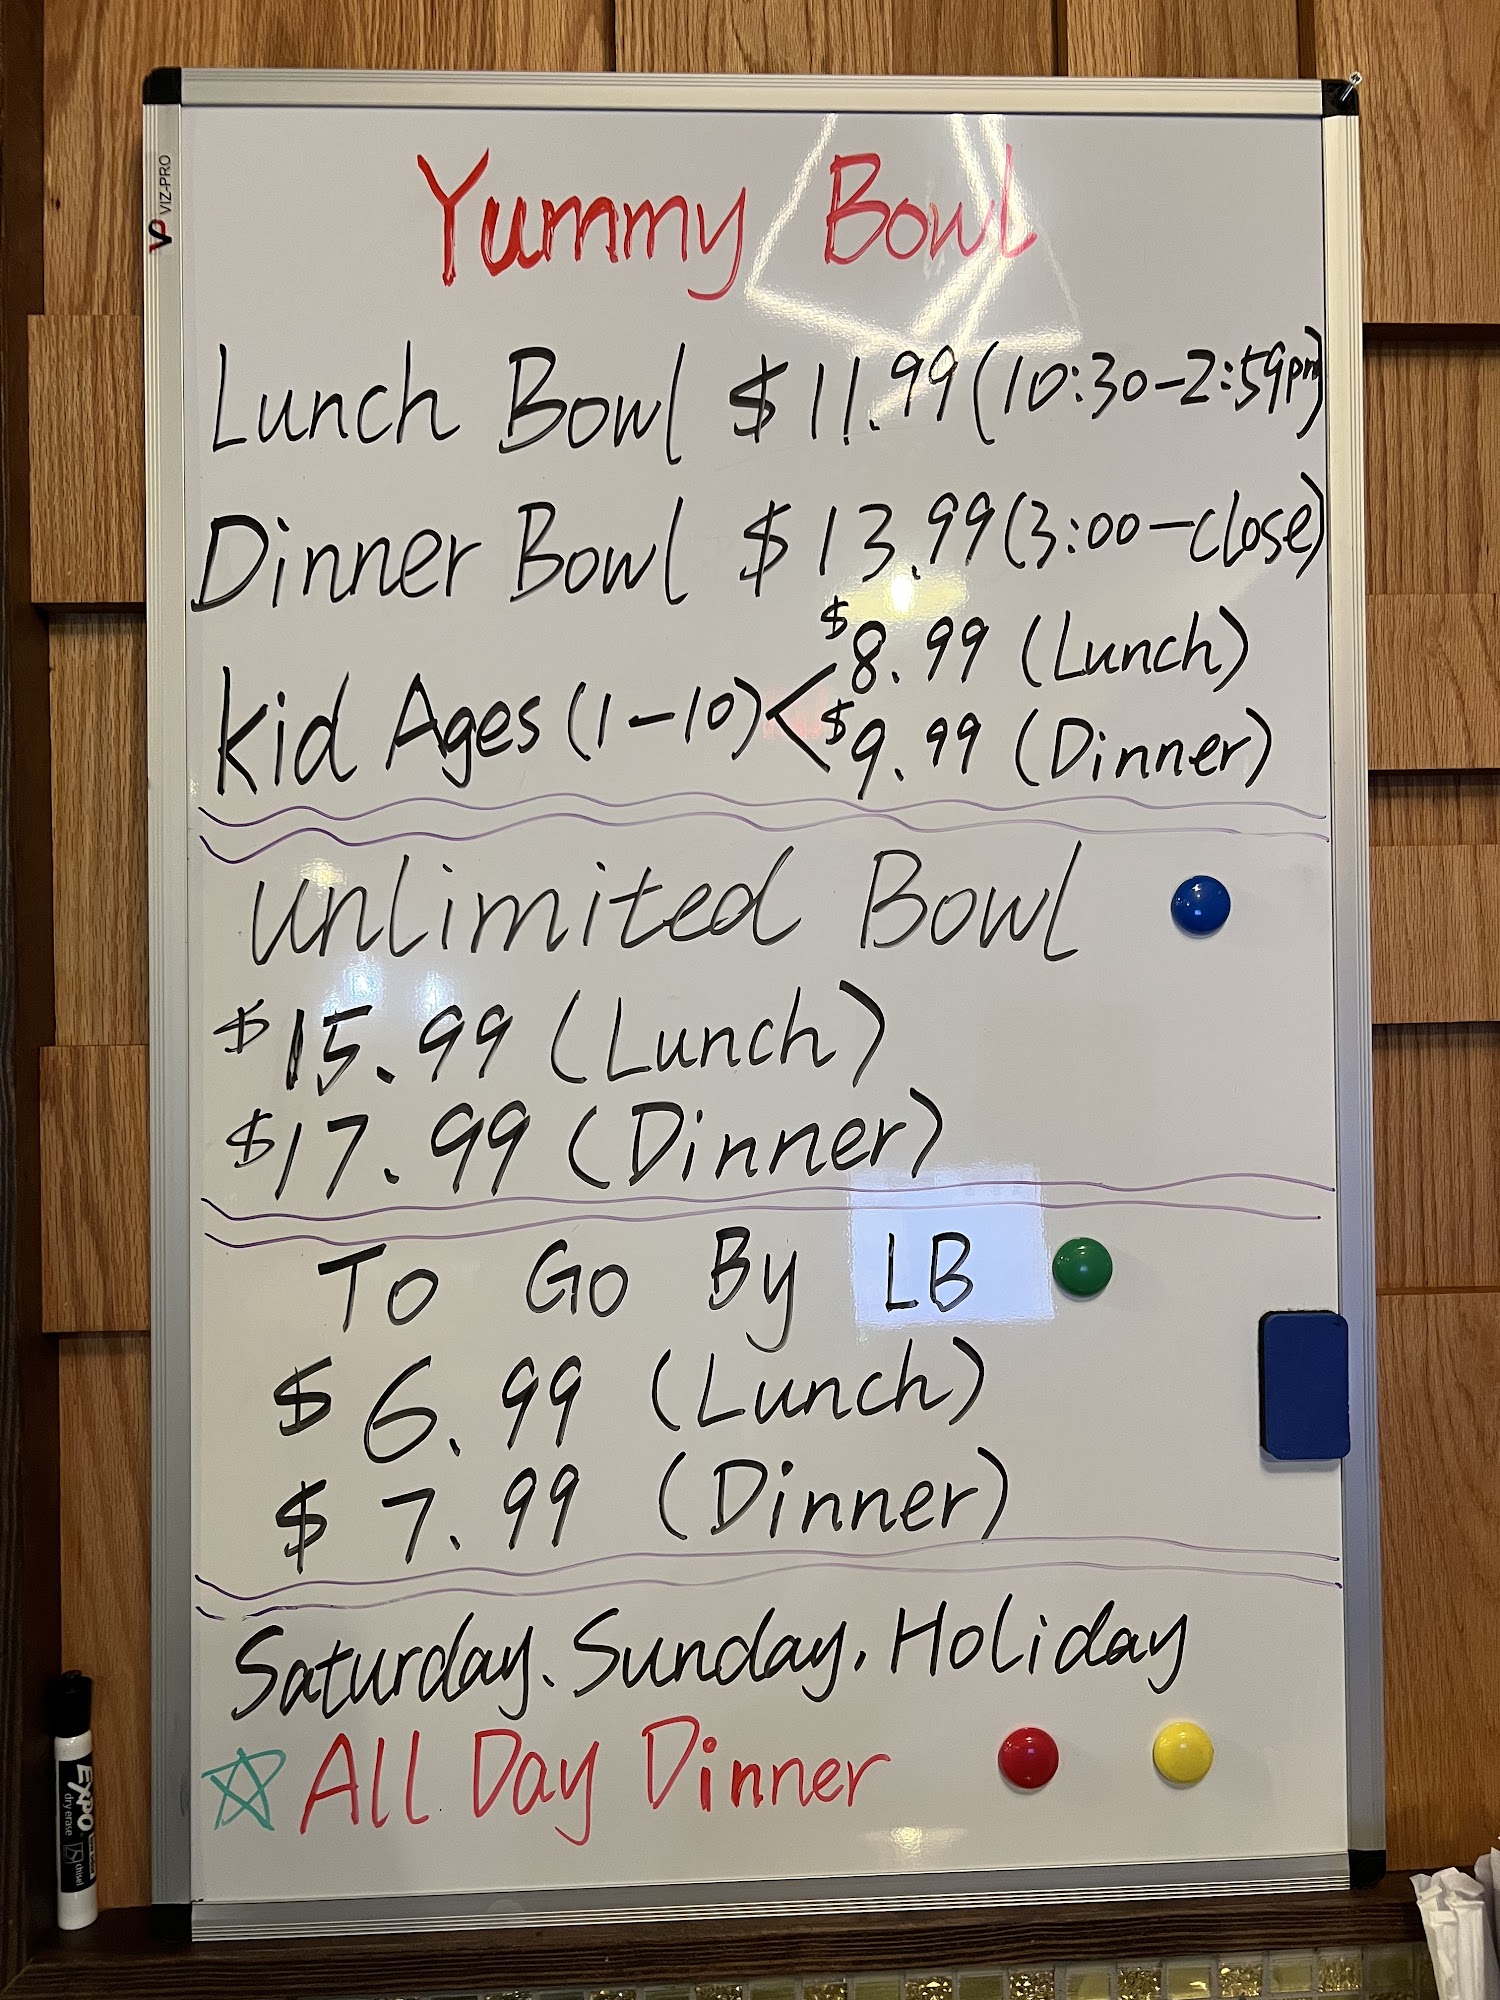 VIZ-PRO
Yummy Bowl
Lunch Bowl $11.99 (10:30-2:59pm)
Dinner Bowl $13.99 (3:00-close)
Kid Ages (1-10) < $8.99 (Lunch)
$9.99 (Dinner)
Unlimited Bowl
$15.99 (Lunch)
$17.99 (Dinner)
To Go By LB
$6.99 (Lunch)
$7.99 (Dinner)
Saturday, Sunday, Holiday
☆ All Day Dinner
EXPO
dry erase
chisel